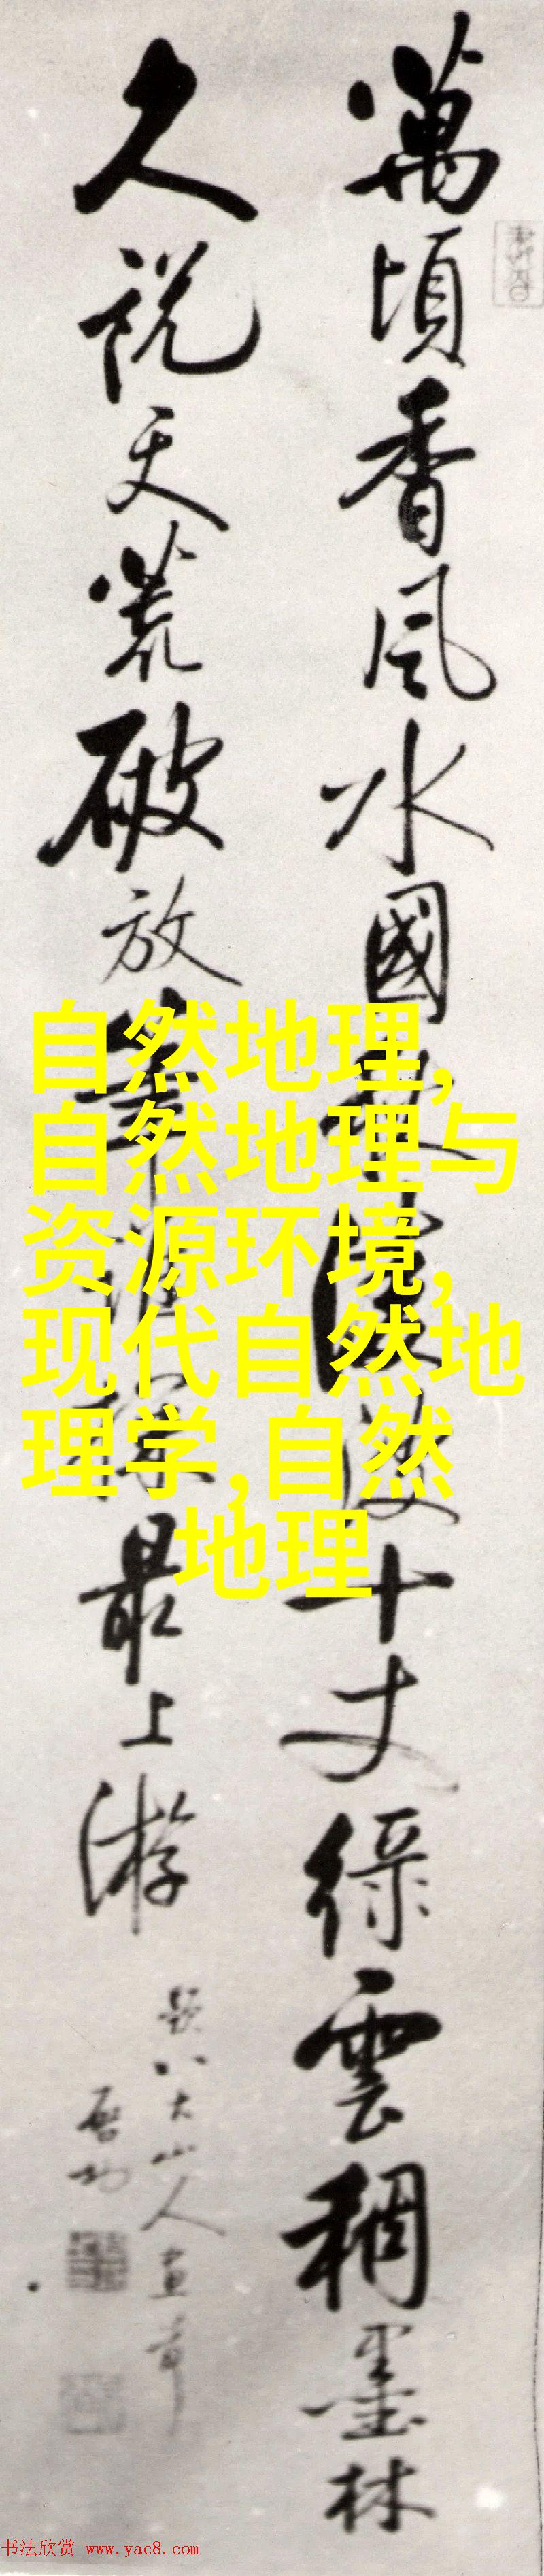 萬頃香風水國十丈綠雲稠墨林
久說天荒破放最上游
題八大山人画
启功
自然地理,
自然地理与
资源环境,
现代自然地
理学,自然
地理
书法欣赏 www.yac8.com